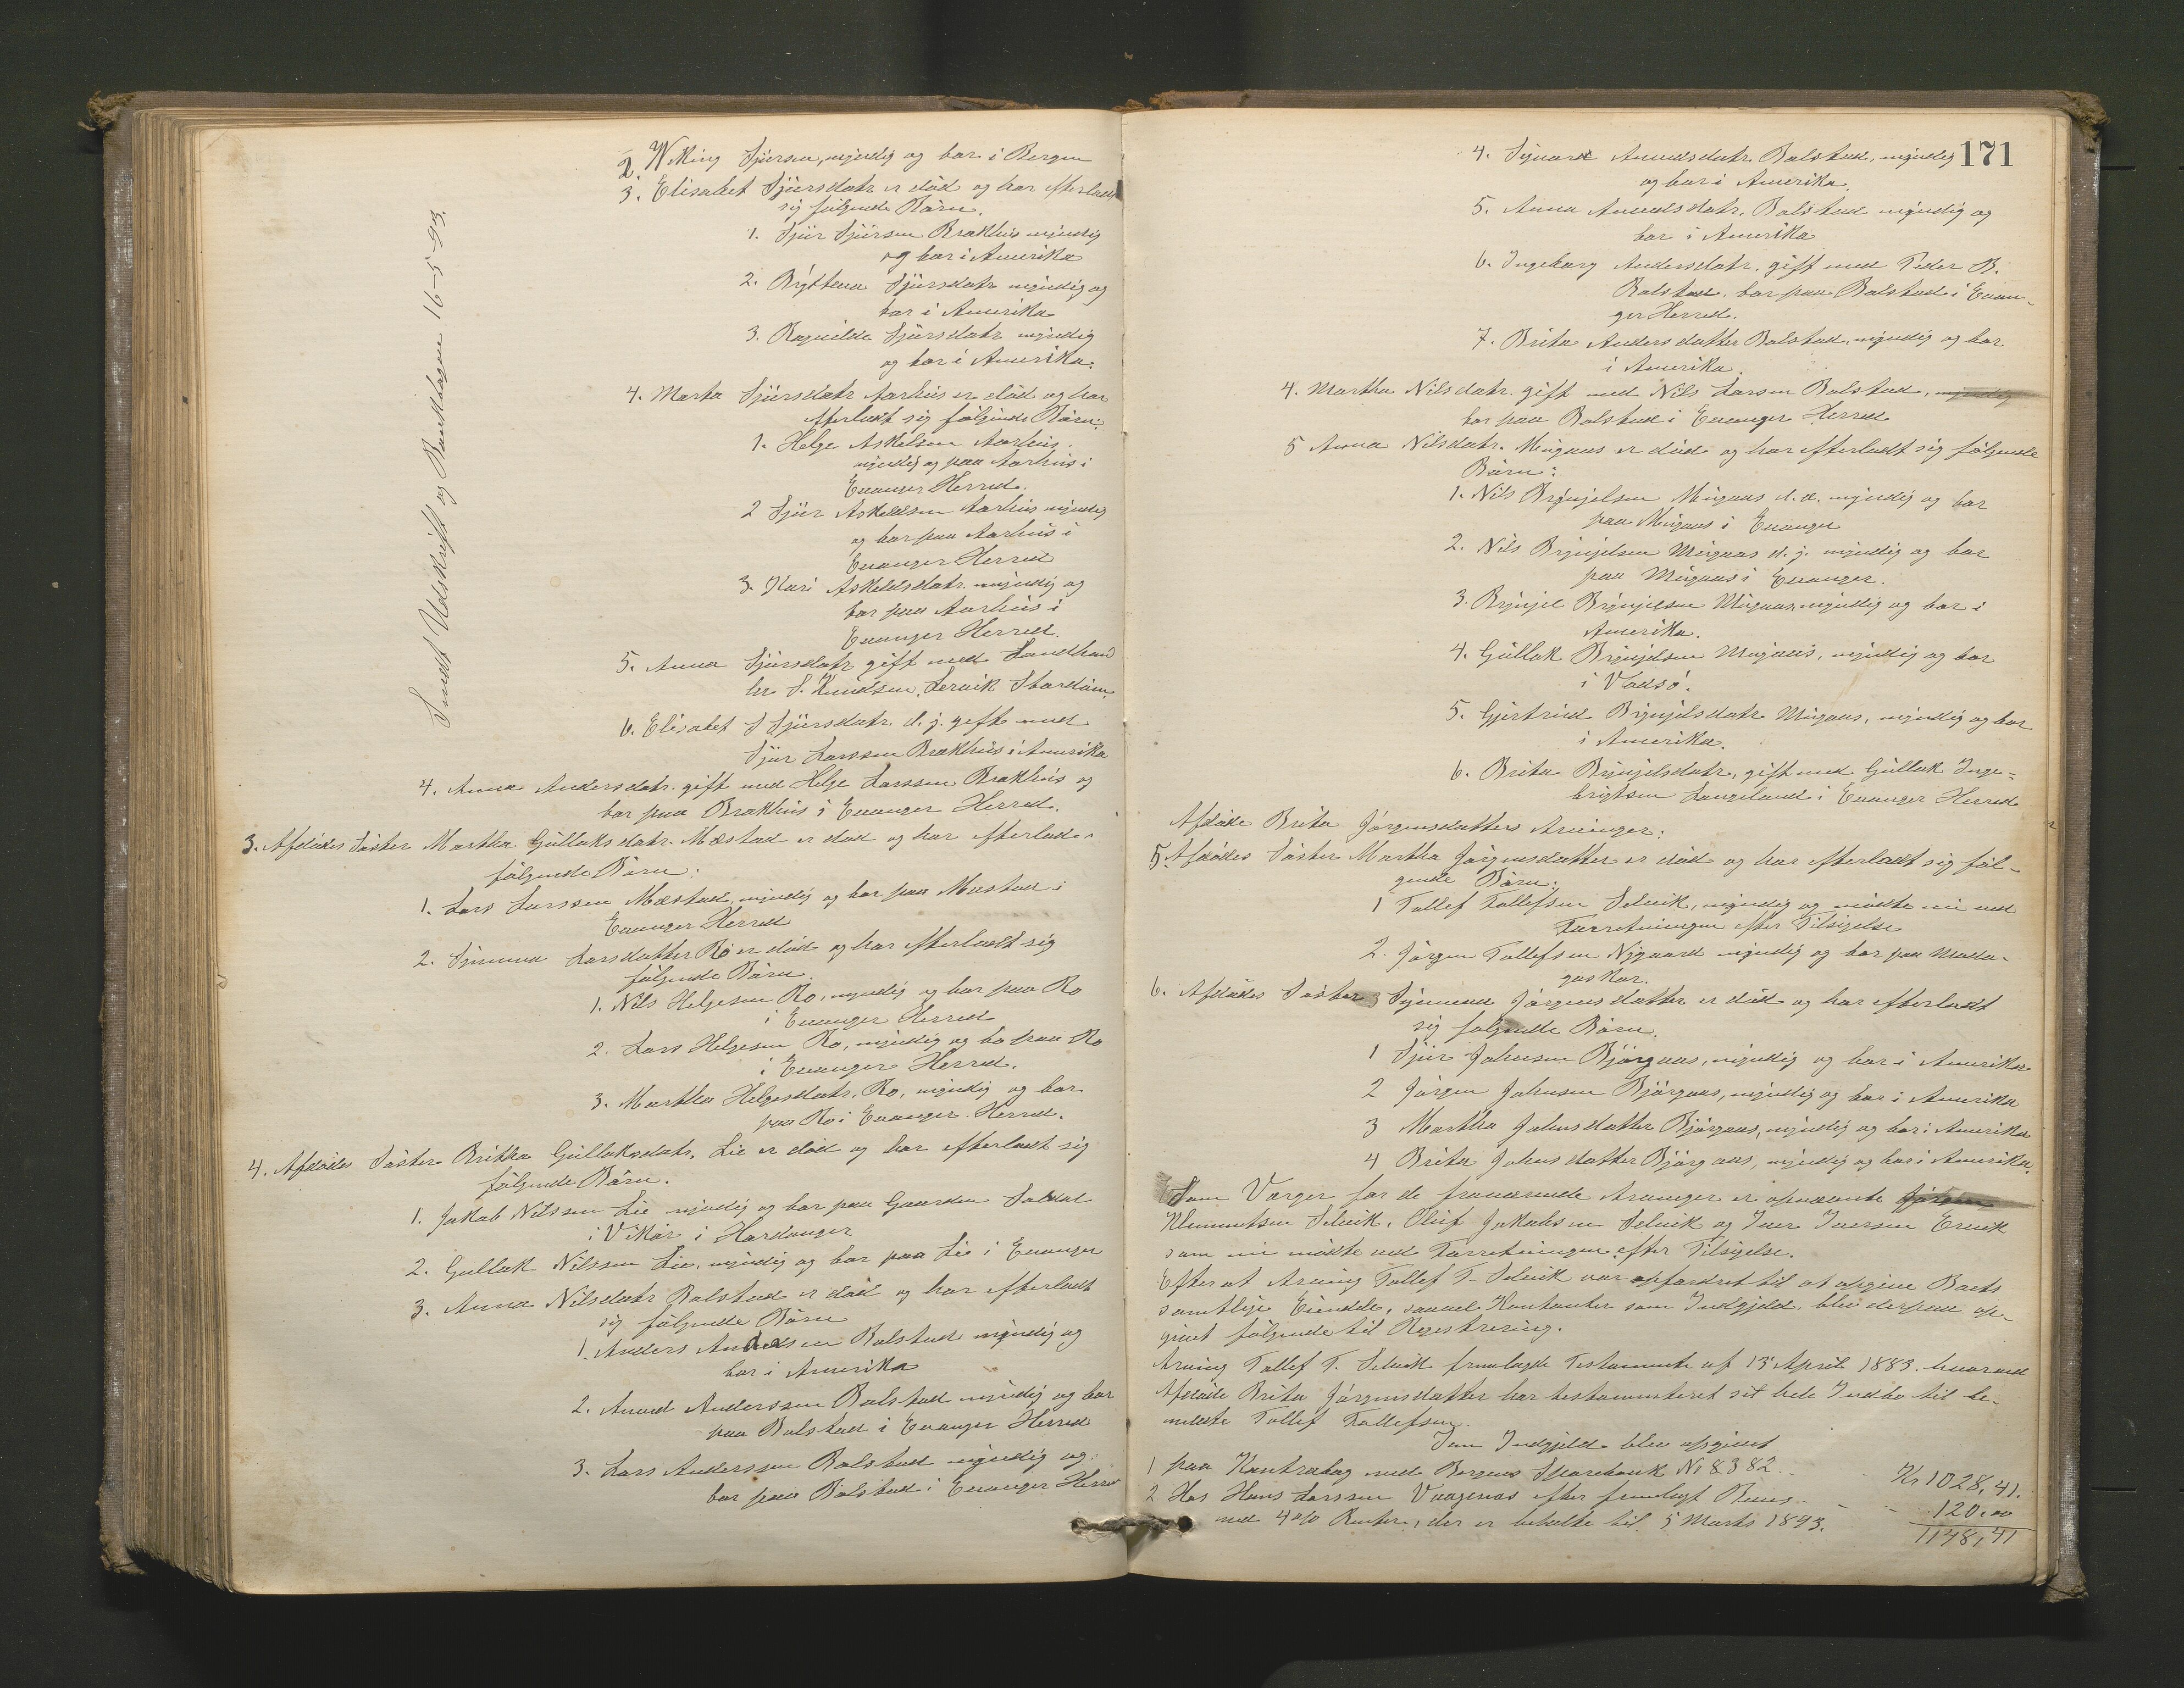 Sendt Udskrift og 16-5-93.
2. Wiking Sjursen, myndig og bor i Bergen
3. Elisabet Sjursdatr er död og har efterladt
sig følgende Börn.
1. Sjur Sjursen Brækhus myndig
og bor i Amerika
2. Sjursdatr myndig og
bor i Amerika
3. Ragnilda Sjursdatr myndig
og bor i Amerika.
4. Marta Sjursdatr Aarhus er död og har
efterladt sig følgende Börn.
1. Helge Askelsen Aarhus.
myndig og paa Aarhus i
Evanger Herred.
2 Sjur Askeldsen Aarhus myndig
og bor paa Aarhus i
Evanger Herred
3. Kari Askeldsdatr. myndig og
bor paa Aarhus i
Evanger Herred.
5. Anna Sjursdatr gift med Landhand
ler S. Knudsen, Leruik Stordöen.
6. Elisabet S Sjursdatr. d. j. gift med
Sjur Larssen Brækhus i Amerika
4. Anna Andersdatr. gift med Helge Larssen Brækhus og
bor paa Brækhus i Evanger Herred.
3. Afdödes Söster Martha Gullaksdatr. Mæstad er död og har efterlad.
følgende Börn:
1. Lars Larssen Mæstad, myndig og bor paa Mæstad i
Evanger Herred
2. Larsdatter Ro er död og har efterladt sig
følgende Börn.
1. Nils Helgesen Ro, myndig og bor paa Ro
i Evanger Herred
2. Lars Helgesen Ro, myndig og bo paa Ro
i Evanger Herred.
3. Martha Helgesdatr. Ro, myndig og bor
paa Ro i Evanger Herred.
4. Afdödes Söster Britha Gullaksdatr. Lie er död og har efterladt sig
følgende Börn.
1. Jakob Nilssen Lie myndig og bor paa Gaarden
i Vikör i Hardanger
2. Gullak Nilssen Lie, myndig og bor paa Lie i Evanger
3. Anna Nilsdatr Bolstad er död og har efterladt
sig følgende Börn
1. Anders Anderssen Bolstad myndig og
bor i Amerika
2. Amund Anderssen Bolstad myndig og bor
paa Bolstad i Evanger Herred
3. Lars Anderssen Bolstad myndig og
bor paa Bolstad i Evanger Herred
171
4. Amundsdatr. Bolstad, myndig
og bor i Amerika.
5. Anna Amundsdatr. Bolstad myndig og
bor i Amerika
6. Ingeborg Andersdatr. gift med Peder B.
Bolstad, bor paa Bolstad i Evan-
ger Herred.
7. Brita Andersdatter Bolstad, myndig og bor
i Amerika.
4. Martha Nilsdatr. gift med Nils Larsen Bolstad, myndig
bor paa Bolstad i Evanger Herred
5 Anna Nilsdatr. Mugaas er död og har efterladt sig følgende
Börn:
1. Nils Brynjelsen Mugaas d. æ. myndig og bor
paa Mugaas i Evanger
2. Nils Brynjelsen Mugaas d. j. myndig og bor
paa Mugaas i Evanger.
3. Brynjel Brynjelsen Mugaas, myndig og bor i
Amerika.
4. Gullak Brynjelsen Mugaas, myndig og bor
i Vadsö.
5. Gjertrud Brynjelsdatr. Mugaas, myndig og bor
i Amerika.
6. Brita Brynjelsdatr. gift med Gullak Inge-
brigtsen Langeland i Evanger Herred
Afdöde Brita Jörgensdatters Arvinger:
5. Afdödes Söster Martha Jörgensdatter er död og har efterladt sig föl-
gende Börn:
1 Tollef Tollefsen Seluik, myndig og mödte nu ved
Forretningen efter Tilsigelse
2. Jörgen Tollefsen Nygaard myndig og bor paa Mada-
gaskar.
6. Afdödes Söster Jörgensdatter er död og har efterladt
sig følgende Börn.
1 Sjur Johnsen Björgaas, myndig og bor i Amerika
2 Jörgen Johnsen Björgaas, myndig og bor i Amerika
3 Martha Johnsdatter Björgaas, myndig og bor i Amerika
4 Brita Johnsdatter Björgaas, myndig og bor i Amerika.
Som Værger for de fraværende Arvinger er opnævnte
Klemmetsen Seluik, Oluf Jakobsen Seluik og Iver Iversen Eruik
som nu mödte ved Forretningen efter Tilsigelse.
Efter at Arving Tollef T. Seluik var opfordret til at opgive Boets
samtlige Eiendele, saavel Kontanter som Indgjeld, blev derpaa op-
givet følgende til Registrering.
Arving Tollef T. Seluik fremlagde Testamente af 13 April 1883. hvorved
Afdöde Brita Jörgensdatter har testamenteret sit hele Indbo til be-
meldte Tollef Tollefsen.
Som Indgjeld blev opgivet
1 paa Kontrabog med Bergens Sparebank No 8382 Kr 1028,41.
2 Hos Hans Larssen efter fremlagt Bevis
med 4 o/o Renter, der er betalte til 5 Marts 1893. 120,00
1148,41